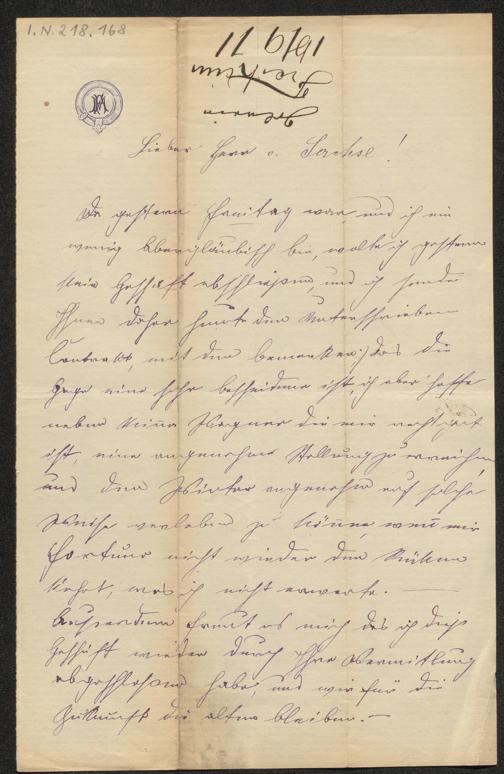 I.N. 218.168
Lieber Herr v. Sachse!
Da gestern Freitag war, und ich ein
wenig abergläubisch bin, wollte ich gestern
kein Geschäft abschließen, und ich sende
Ihnen daher heute den unterschriebenen
Contrakt, mit dem bemerken: das die
Gage eine sehr bescheidene ist, ich aber hoffe
neben Wagner die mir recht gut
ist, eine angenehme Stellung zu erreichen
und den Winter angenehm auf solche
Weise verleben zu können, wenn mir
Fortuna nicht wieder den Rücken
kehrt, was ich nicht erwarte. —
Außerdem freut es mich das ich dieß
Geschäft wieder durch Ihre Vermittlung
abgeschlossen habe, und wir für die
Zukunft die alten bleiben. —